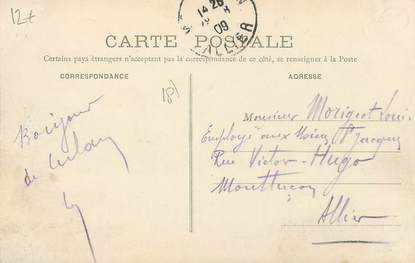 12+
14 26
09
ALLIER
CARTE POSTALE
Certains pays étrangers n'acceptent pas la correspondance de ce côté, se renseigner à la Poste
CORRESPONDANCE
ADRESSE
181
Bonjour
de
Monsieur Morigeot Louis
Employé aux Usines St Jacques
Rue Victor-Hugo
Montluçon
Allier